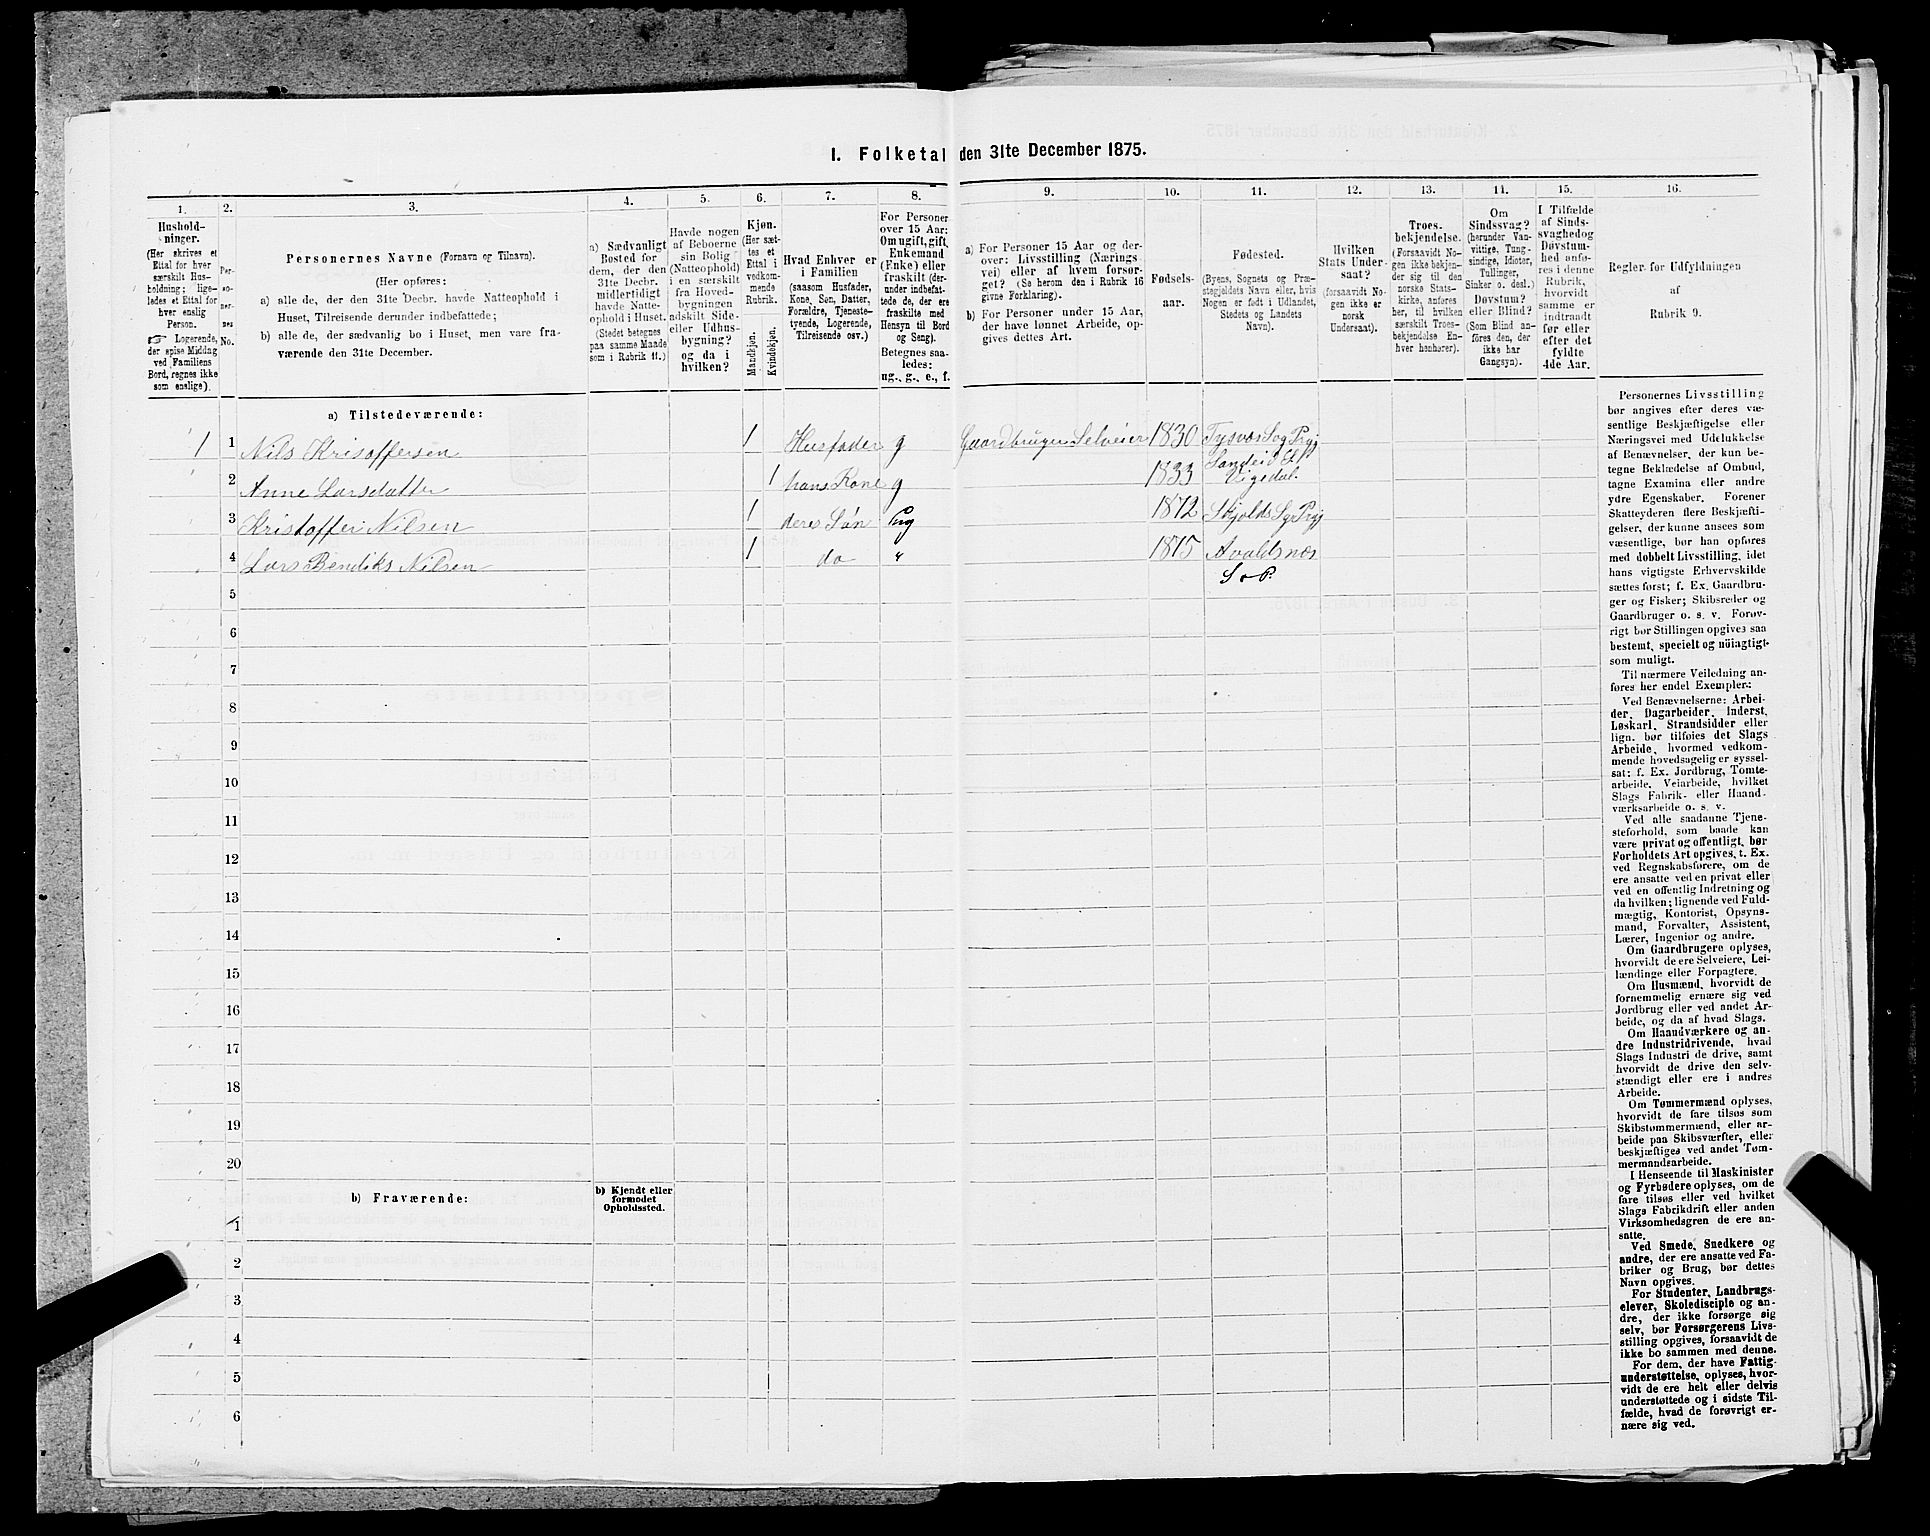 I. Folketal den 31te December 1875.
1. 2. 3. 4. 5. 6. 7. 8. 9. 10. 11. 12. 13. 14. 15. 16.
Hushold-
ninger.
(Her skrives et
Ettal for hver
særskilt Hus-
holdning; lige-
ledes et Ettal for
hver enslig
Person.
☞ Logerende,
der spise Middag
ved Familiens
Bord, regnes ikke
som enslige).
Per-
so-
ner-
nes
No.
Personernes Navne (Fornavn og Tilnavn).
(Her opføres:
a) alle de, der den 31te Decbr. havde Natteophold i
Huset, Tilreisende derunder indbefattede;
b) alle de, der sædvanlig bo i Huset, men vare fra-
værende den 31te December.
a) Sædvanligt
Bosted for
dem, der den
31te Decbr.
midlertidigt
havde Natte-
ophold i Huset.
(Stedet betegnes
paa samme Maade
som i Rubrik 11.)
Havde nogen
af Beboerne
sin Bolig
(Natteophold)
i en særskilt
fra Hoved-
bygningen
adskilt Side-
eller Udhus-
bygning?
og da i
hvilken?
Kjøn.
(Her sæt-
tes et
Ettal i
vedkom-
mende
Rubrik.
Mandkjøn.
Kvindekjøn.
Hvad Enhver er
i Familien
(saasom Husfader,
Kone, Søn, Datter,
Forældre, Tjeneste-
tyende, Logerende,
Tilreisende osv.)
For Personer
over 15 Aar:
Om ugift, gift,
Enkemand
(Enke) eller
fraskilt (der-
under indbefat-
tede de, der ere
fraskilte med
Hensyn til Bord
og Seng).
Betegnes saa-
ledes:
ug., g., e., f.
a) For Personer 15 Aar og der-
over: Livsstilling (Nærings-
vei) eller af hvem forsør-
get? (Se herom den i Rubrik 16
givne Forklaring).
b) For Personer under 15 Aar,
der have lønnet Arbeide, op-
gives dettes Art.
Fødsels-
aar.
Fødested.
(Byens, Sognets og Præ-
stegjeldets Navn eller, hvis
Nogen er født i Udlandet,
Stedets og Landets
Navn).
Hvilken
Stats Under-
saat?
(forsaavidt No-
gen ikke er
norsk
Undersaat).
Troes-
bekjendelse.
(Forsaavidt No-
gen ikke bekjen-
der sig til den
norske Stats-
kirke, anføres
her, til hvilken
særskilt Troes-
bekjendelse En-
hver henhører).
Om
Sindssvag?
(herunder Van-
vittige, Tung-
sindige, Idioter,
Tullinger,
Sinker o. desl.)
Døvstum?
eller Blind?
(Som Blind an-
føres den, der
ikke har
Gangsyn).
I Tilfælde
af Sinds-
svaghed og
Døvstum-
hed anfø-
res i denne
Rubrik,
hvorvidt
samme er
indtraadt
før eller
efter det
fyldte
4de Aar.
Regler for Udfyldningen
af
Rubrik 9.
a) Tilstedeværende:
1 1 Nils Kristoffersen 1 Husfader g Gaardbruger Selveier 1830 Tysvær Sog Prgj
2 Anne Larsdatter 1 hans Kone g 1833 Sandeid S. P.
Vigedal.
3 Kristoffer Nilsen 1 deres Søn ug 1872 Skjolds Sg Prgj
4 Lars Bendiks Nilsen 1 do " 1875 Avaldsnæs
S o P.
5
6
7
8
9
10
11
12
13
14
15
16
17
18
19
20
b) Fraværende:
b) Kjendt eller
formodet
Opholdssted.
1
2
3
4
5
6
Personernes Livsstilling
bør angives efter deres væ-
sentlige Beskjæftigelse eller
Næringsvei med Udelukkelse
af Benævnelser, der kun be-
tegne Beklædelse af Ombud,
tagne Examina eller andre
ydre Egenskaber. Forener
Skatteyderen flere Beskjæfti-
gelser, der kunne ansees som
væsentlige, bør han opføres
med dobbelt Livsstilling, idet
hans vigtigste Erhvervskilde
sættes først; f. Ex. Gaardbru-
ger og Fisker; Skibsreder og
Gaardbruger o. s. v. Forøv-
rigt bør Stillingen opgives saa
bestemt, specielt og nöiagtigt
som muligt.
Til nærmere Veiledning an-
føres her endel Exempler:
Ved Benævnelserne: Arbei-
der, Dagarbeider, Inderst,
Løskarl, Strandsidder eller
lign. bør tilføies det Slags
Arbeide, hvormed vedkom-
mende hovedsagelig er syssel-
sat: f. Ex. Jordbrug, Tomte-
arbeide, Veiarbeide, hvilket
Slags Fabrik- eller Haand-
værksarbeide o. s. v.
Ved alle saadanne Tjene-
steforhold, som baade kan
være privat og offentligt, bør
Forholdets Art opgives, t. Ex.
ved Regnskabsførere, om de
ere ansatte ved en privat eller
ved en offentlig Indretning og
da hvilken; lignende ved Fuld-
mægtig, Kontorist, Opsyns-
mand, Forvalter, Assistent,
Lærer, Ingeniør og andre.
Om Gaardbrugere oplyses,
hvorvidt de ere Selveiere, Lei-
lændinge eller Forpagtere.
Om Husmænd, hvorvidt de
fornemmelig ernære sig ved
Jordbrug eller ved andet Ar-
beide, og da af hvad Slags.
Om Haandværkere og an-
dre Industridrivende, hvad
Slags Industri de drive, samt
hvorvidt de drive den selv-
stændigt eller ere i andres
Arbeide.
Om Tømmermænd oplyses,
hvorvidt de fare tilsøs som
Skibstømmermænd, eller ar-
beide paa Skibsværfter, eller
beskjæftiges ved andet Tøm-
mermandsarbeide.
I Henseende til Maskinister
og Fyrbødere oplyses, om de
fare tilsøs eller ved hvilket
Slags Fabrikdrift eller anden
Virksomhedsgren de ere an-
satte.
Ved Smede, Snedkere og
andre, der ere ansatte ved Fa-
briker og Brug, bør dettes
Navn opgives.
For Studenter, Landbrugs-
elever, Skoledisciple og an-
dre, der ikke forsørge sig
selv, bør Forsørgerens Livs-
stilling opgives, forsaavidt de
ikke bo sammen med denne.
For dem, der have Fattig-
understøttelse, oplyses, hvor-
vidt de ere helt eller delvis
understøttede og i sidste Til-
fælde, hvad de forøvrigt er-
nære sig ved.